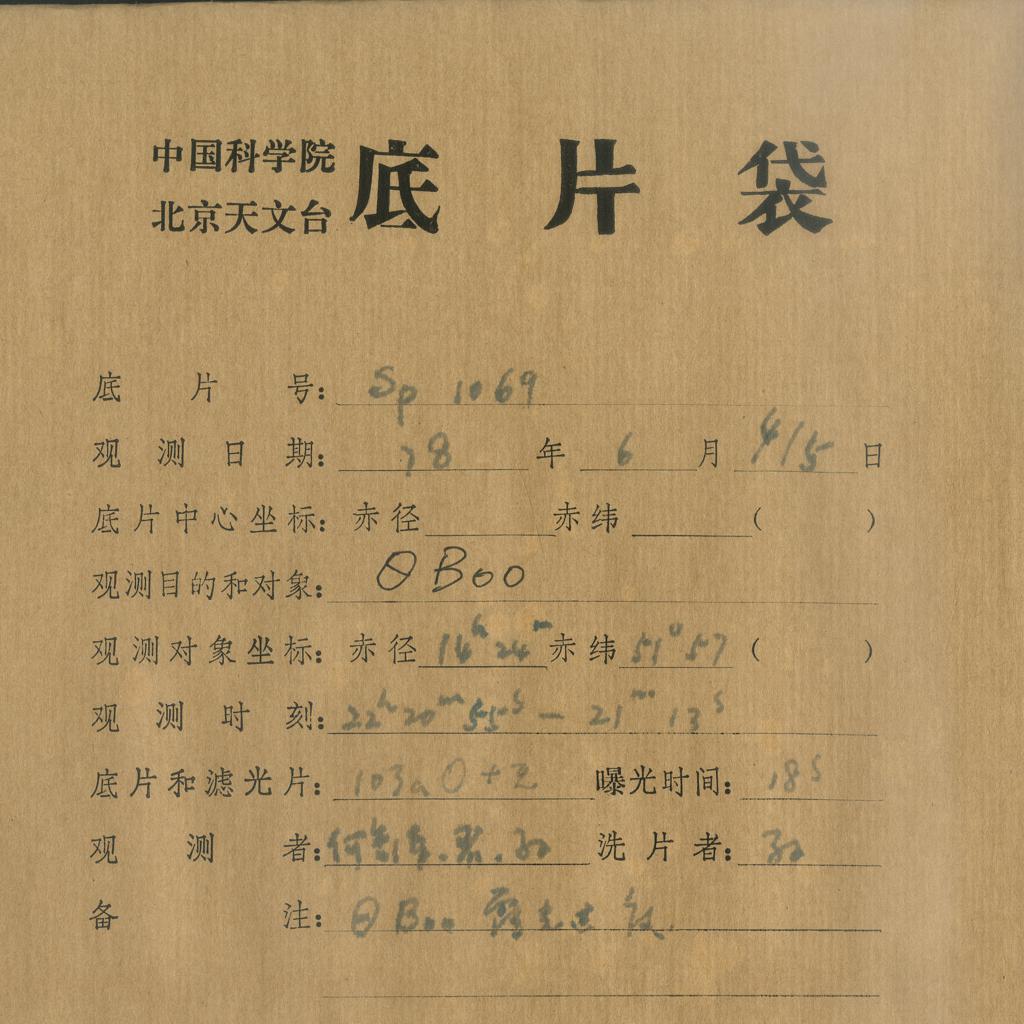 中国科学院
北京天文台 底片袋
底片号: Sp 1069
观测日期: 78 年 6 月 4/5 日
底片中心坐标: 赤径 赤纬 ( )
观测目的和对象: θ Boo
观测对象坐标: 赤径 14h 24m 赤纬 51° 57 ( )
观测时刻: 22h 20m 55s — 21m 13s
底片和滤光片: 103a O + 无 曝光时间: 18s
观测者: 洗片者:
备注: θ Boo